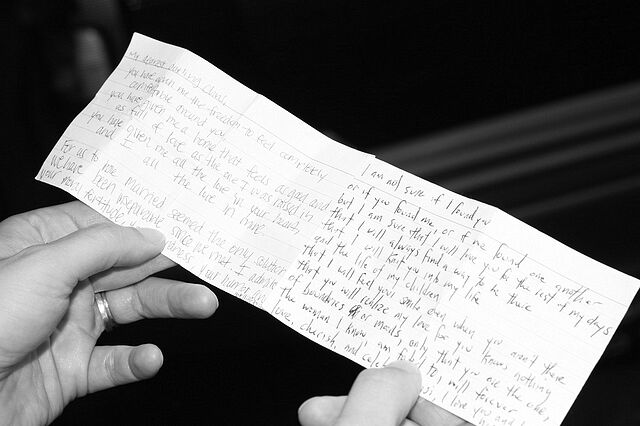 My dearest amazing
you have given me the freedom to feel completely
comfortable around you
you have given me a home that feels as good and
as full of love as the one I was raised in
you have given me all the love in your heart,
and I all the love in mine
For us to have married seemed the only solution
we have been inseparable since we met I admire
your many
I am not sure if I found you
or if you found me, or if we found one another
but I am sure that I will love you for the rest of my days
that I will always find a way to be there
that I will hold you into my life
and the life of my children
that I will feel you smile even when you aren't there
that you will realize my love for you knows nothing
of boundries or moats, only that you are the one,
The woman I know am to, I will forever
love, cherish, and I love you and